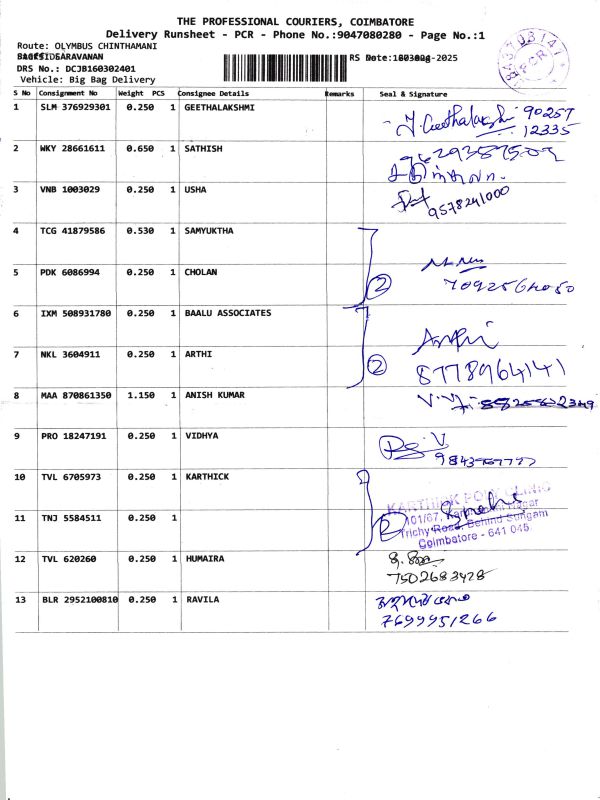 THE PROFESSIONAL COURIERS, COIMBATORE
Delivery Runsheet - PCR - Phone No.:9047080280 - Page No.:1
Route: OLYMBUS CHINTHAMANI
SARAVANAN RS Date:
DRS No.: DCJB160302401
Vehicle: Big Bag Delivery
S No Consignment No Weight PCS Consignee Details Remarks Seal & Signature
1 SLM 376929301 0.250 1 GEETHALAKSHMI
J. Geethalakshmi 90257
12335
2 WKY 28661611 0.650 1 SATHISH
3 VNB 1003029 0.250 1 USHA
9578241000
4 TCG 41879586 0.530 1 SAMYUKTHA
5 PDK 6086994 0.250 1 CHOLAN
2
6 IXM 508931780 0.250 1 BAALU ASSOCIATES
7 NKL 3604911 0.250 1 ARTHI
2
8778964141
8 MAA 870861350 1.150 1 ANISH KUMAR
9 PRO 18247191 0.250 1 VIDHYA
10 TVL 6705973 0.250 1 KARTHICK
KARTHICK POLY CLINIC
11 TNJ 5584511 0.250 1
2
Trichy Road, Behind Sungam
Coimbatore - 641 045
12 TVL 620260 0.250 1 HUMAIRA
7502683428
13 BLR 2952100810 0.250 1 RAVILA
7699951266